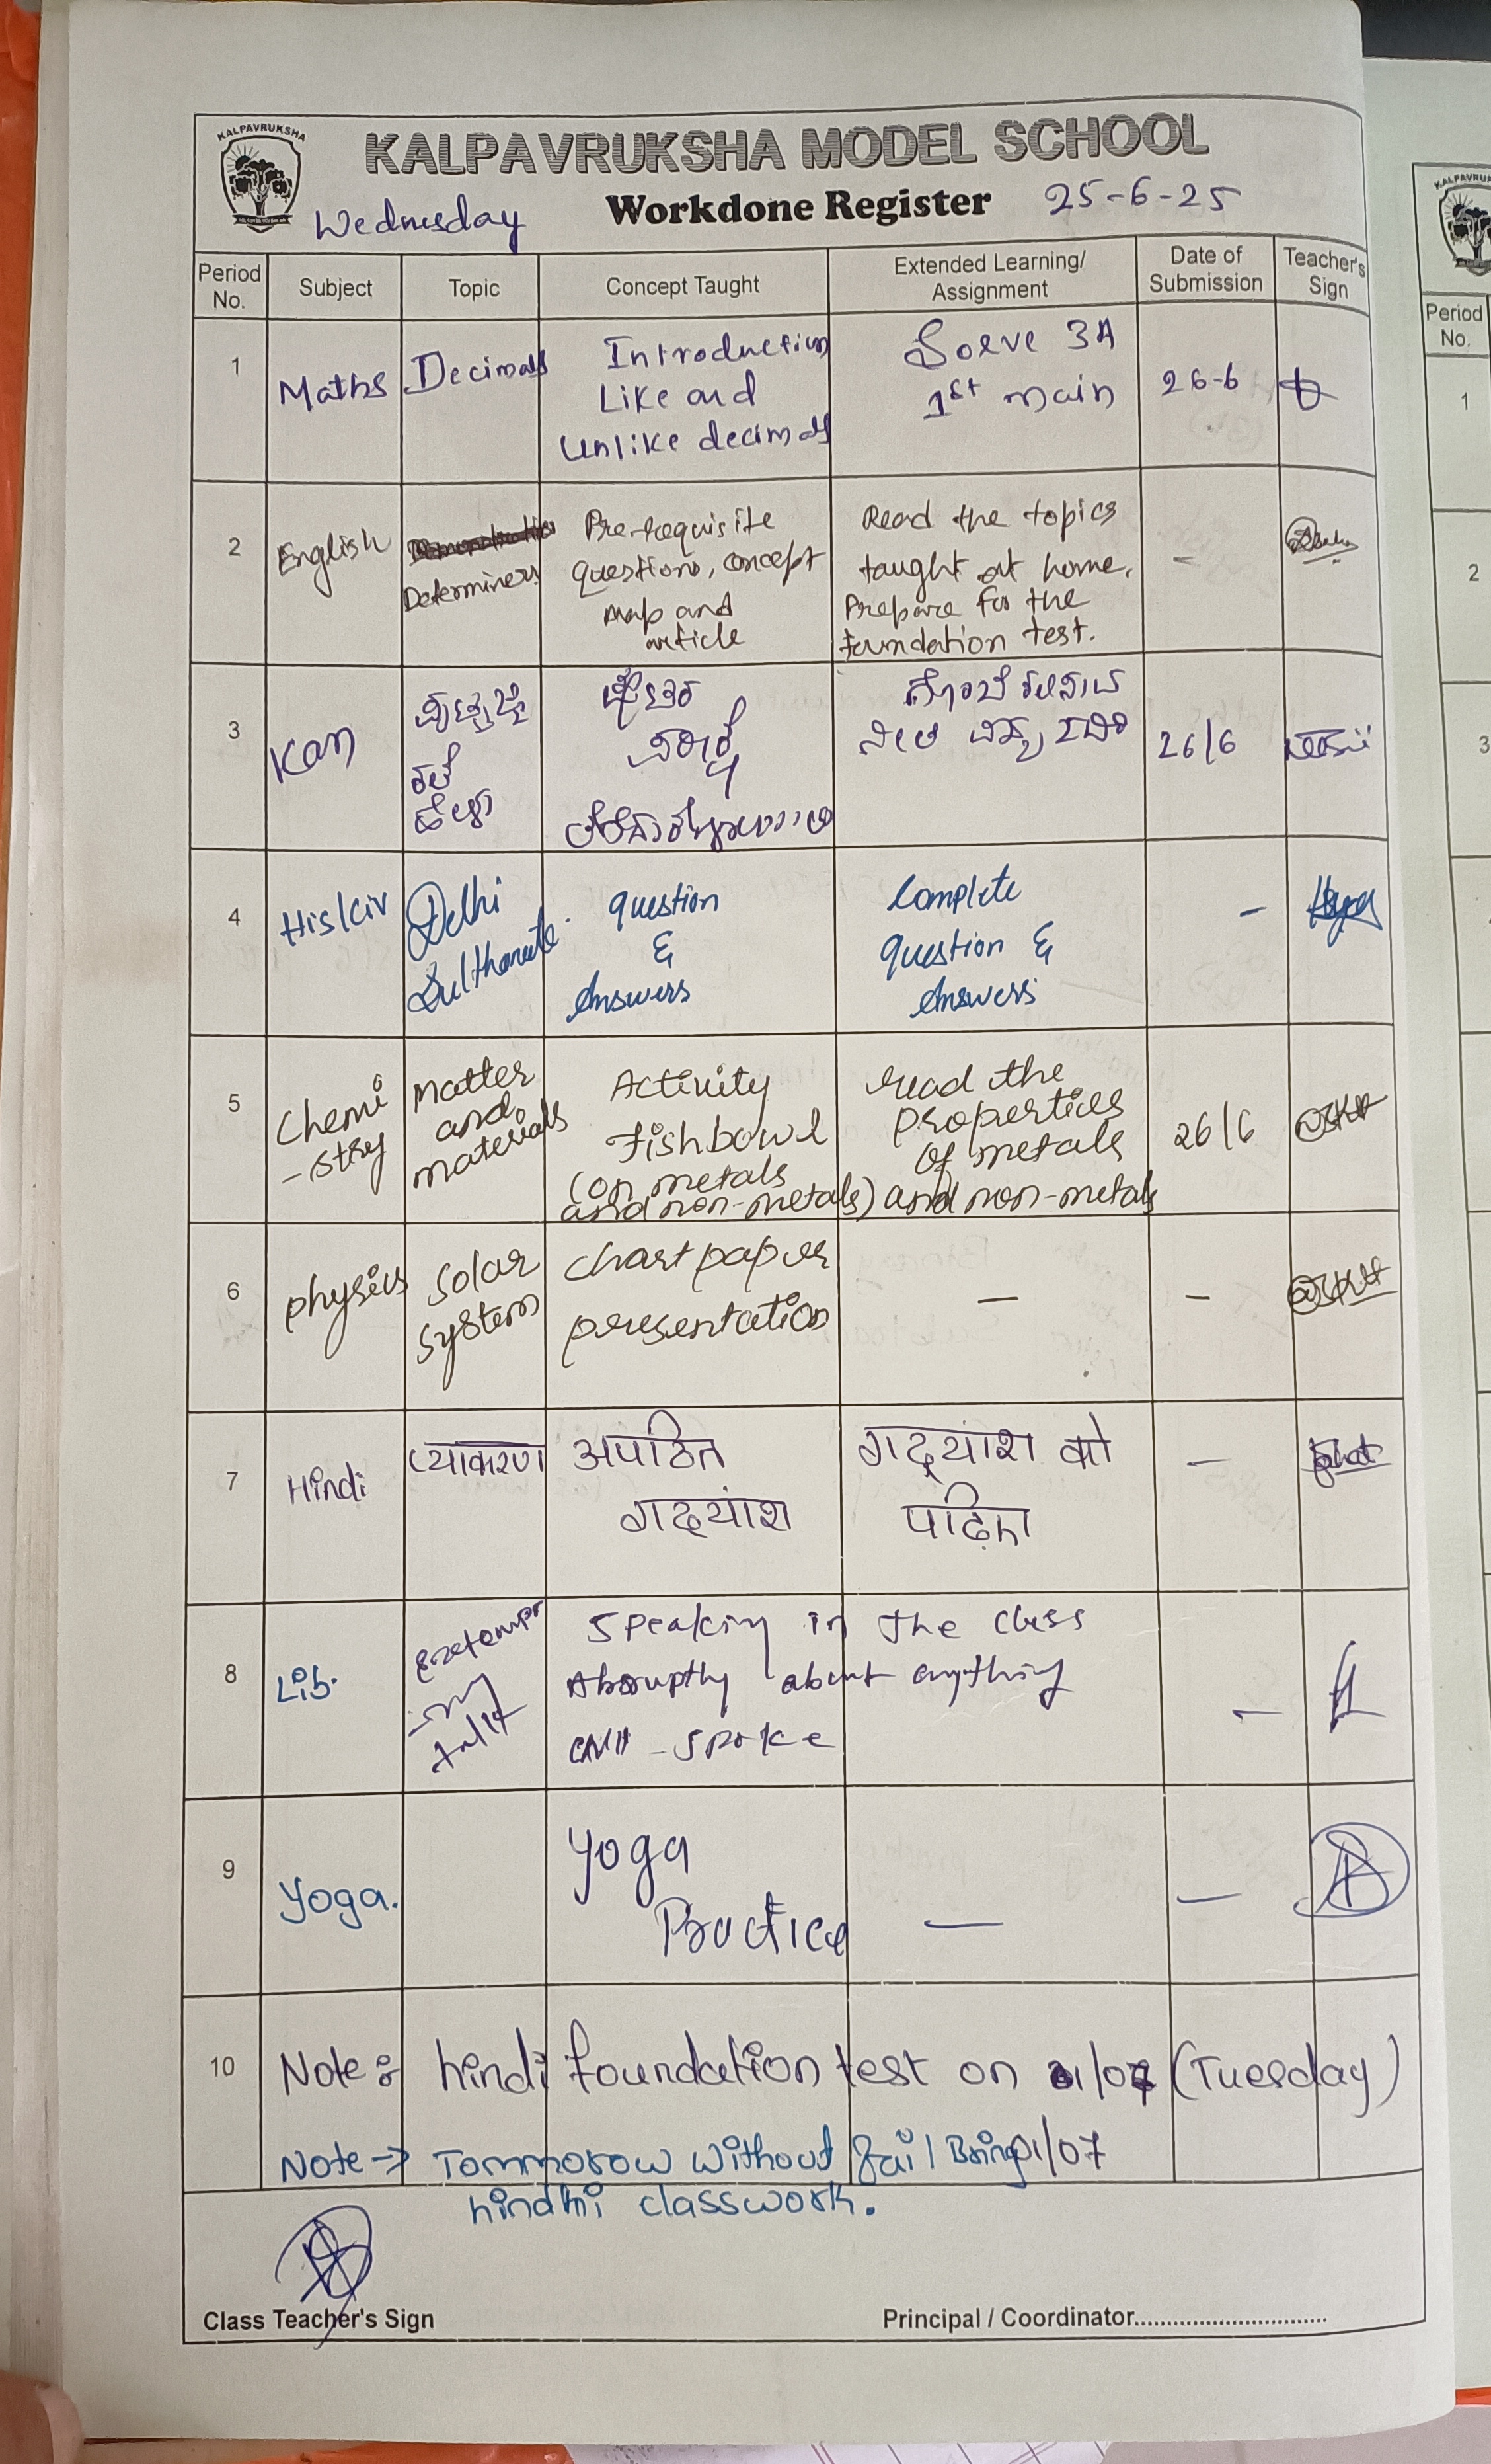 KALPAVRUKSHA
KALPAVRUKSHA MODEL SCHOOL
Wednesday Workdone Register 25-6-25
Period No. Subject Topic Concept Taught Extended Learning/ Assignment Date of Submission Teacher's Sign
1 Maths Decimals Introduction Solve 3A 26-6
Like and 1st main
Unlike decimals
2 English Determiners Pre-requisite Read the topics -
questions, concept taught at home,
map and Prepare for the
article foundation test.
3 Kan 26/6
4 His/Civ Delhi question Complete -
Sulthanate. & question &
Answers Answers
5 Chemi Matter Activity read the 26/6
-stry and Fishbowl properties
materials (on metals of metals
and non-metals) and non-metals
6 physics solar chart paper — -
system presentation
7 Hindi व्याकरण अपठित गद्यांश को —
गद्यांश पढ़िए
8 Lib. Speaking in the class -
about anything
- Spoke
9 Yoga. Yoga — —
Practice
10 Note: hindi foundation test on 01/07 (Tuesday)
Note → Tommorow without fail Bring 01/07
hindhi classwork.
Class Teacher's Sign Principal / Coordinator..............................
KALPAVRUK
Period No.
1
2
3